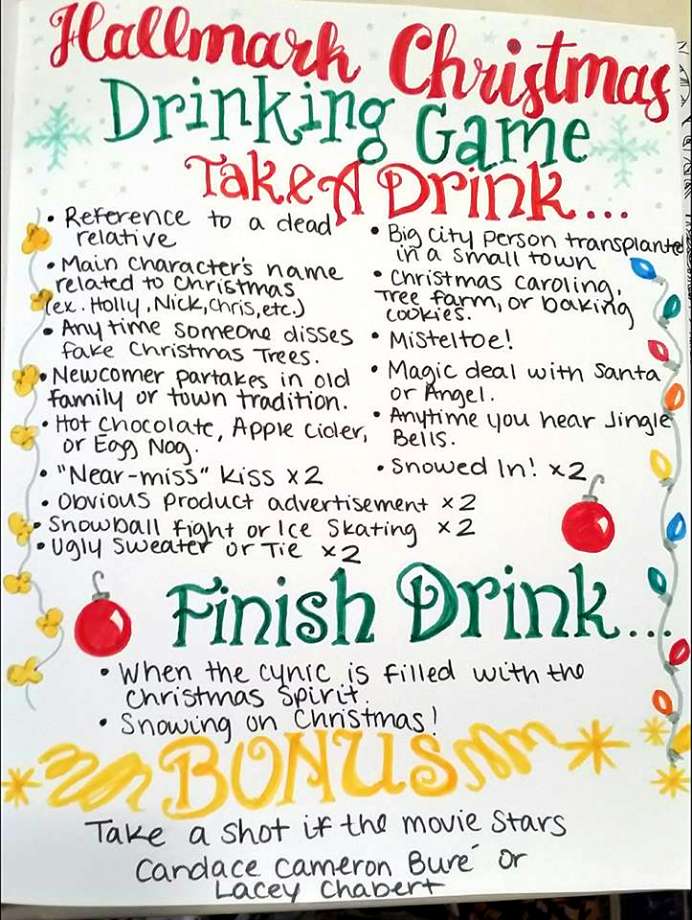 Hallmark Christmas
Drinking Game
Take A Drink...
• Reference to a dead
relative
• Main character's name
related to Christmas
(ex. Holly, Nick, Chris, etc.)
• Anytime someone disses
fake Christmas Trees.
• Newcomer partakes in old
family or town tradition.
• Hot Chocolate, Apple Cider,
or Egg Nog.
• "Near-miss" kiss x2
• Obvious product advertisement x2
• Snowball fight or Ice Skating x2
• Ugly Sweater or Tie x2
• Big city person transplanted
in a small town
• Christmas caroling,
Tree farm, or baking
cookies.
• Misteltoe!
• Magic deal with Santa
or Angel.
• Anytime you hear Jingle
Bells.
• Snowed In! x2
Finish Drink...
• When the cynic is filled with the
Christmas Spirit.
• Snowing on Christmas!
BONUS
Take a shot if the movie stars
Candace Cameron Buré or
Lacey Chabert